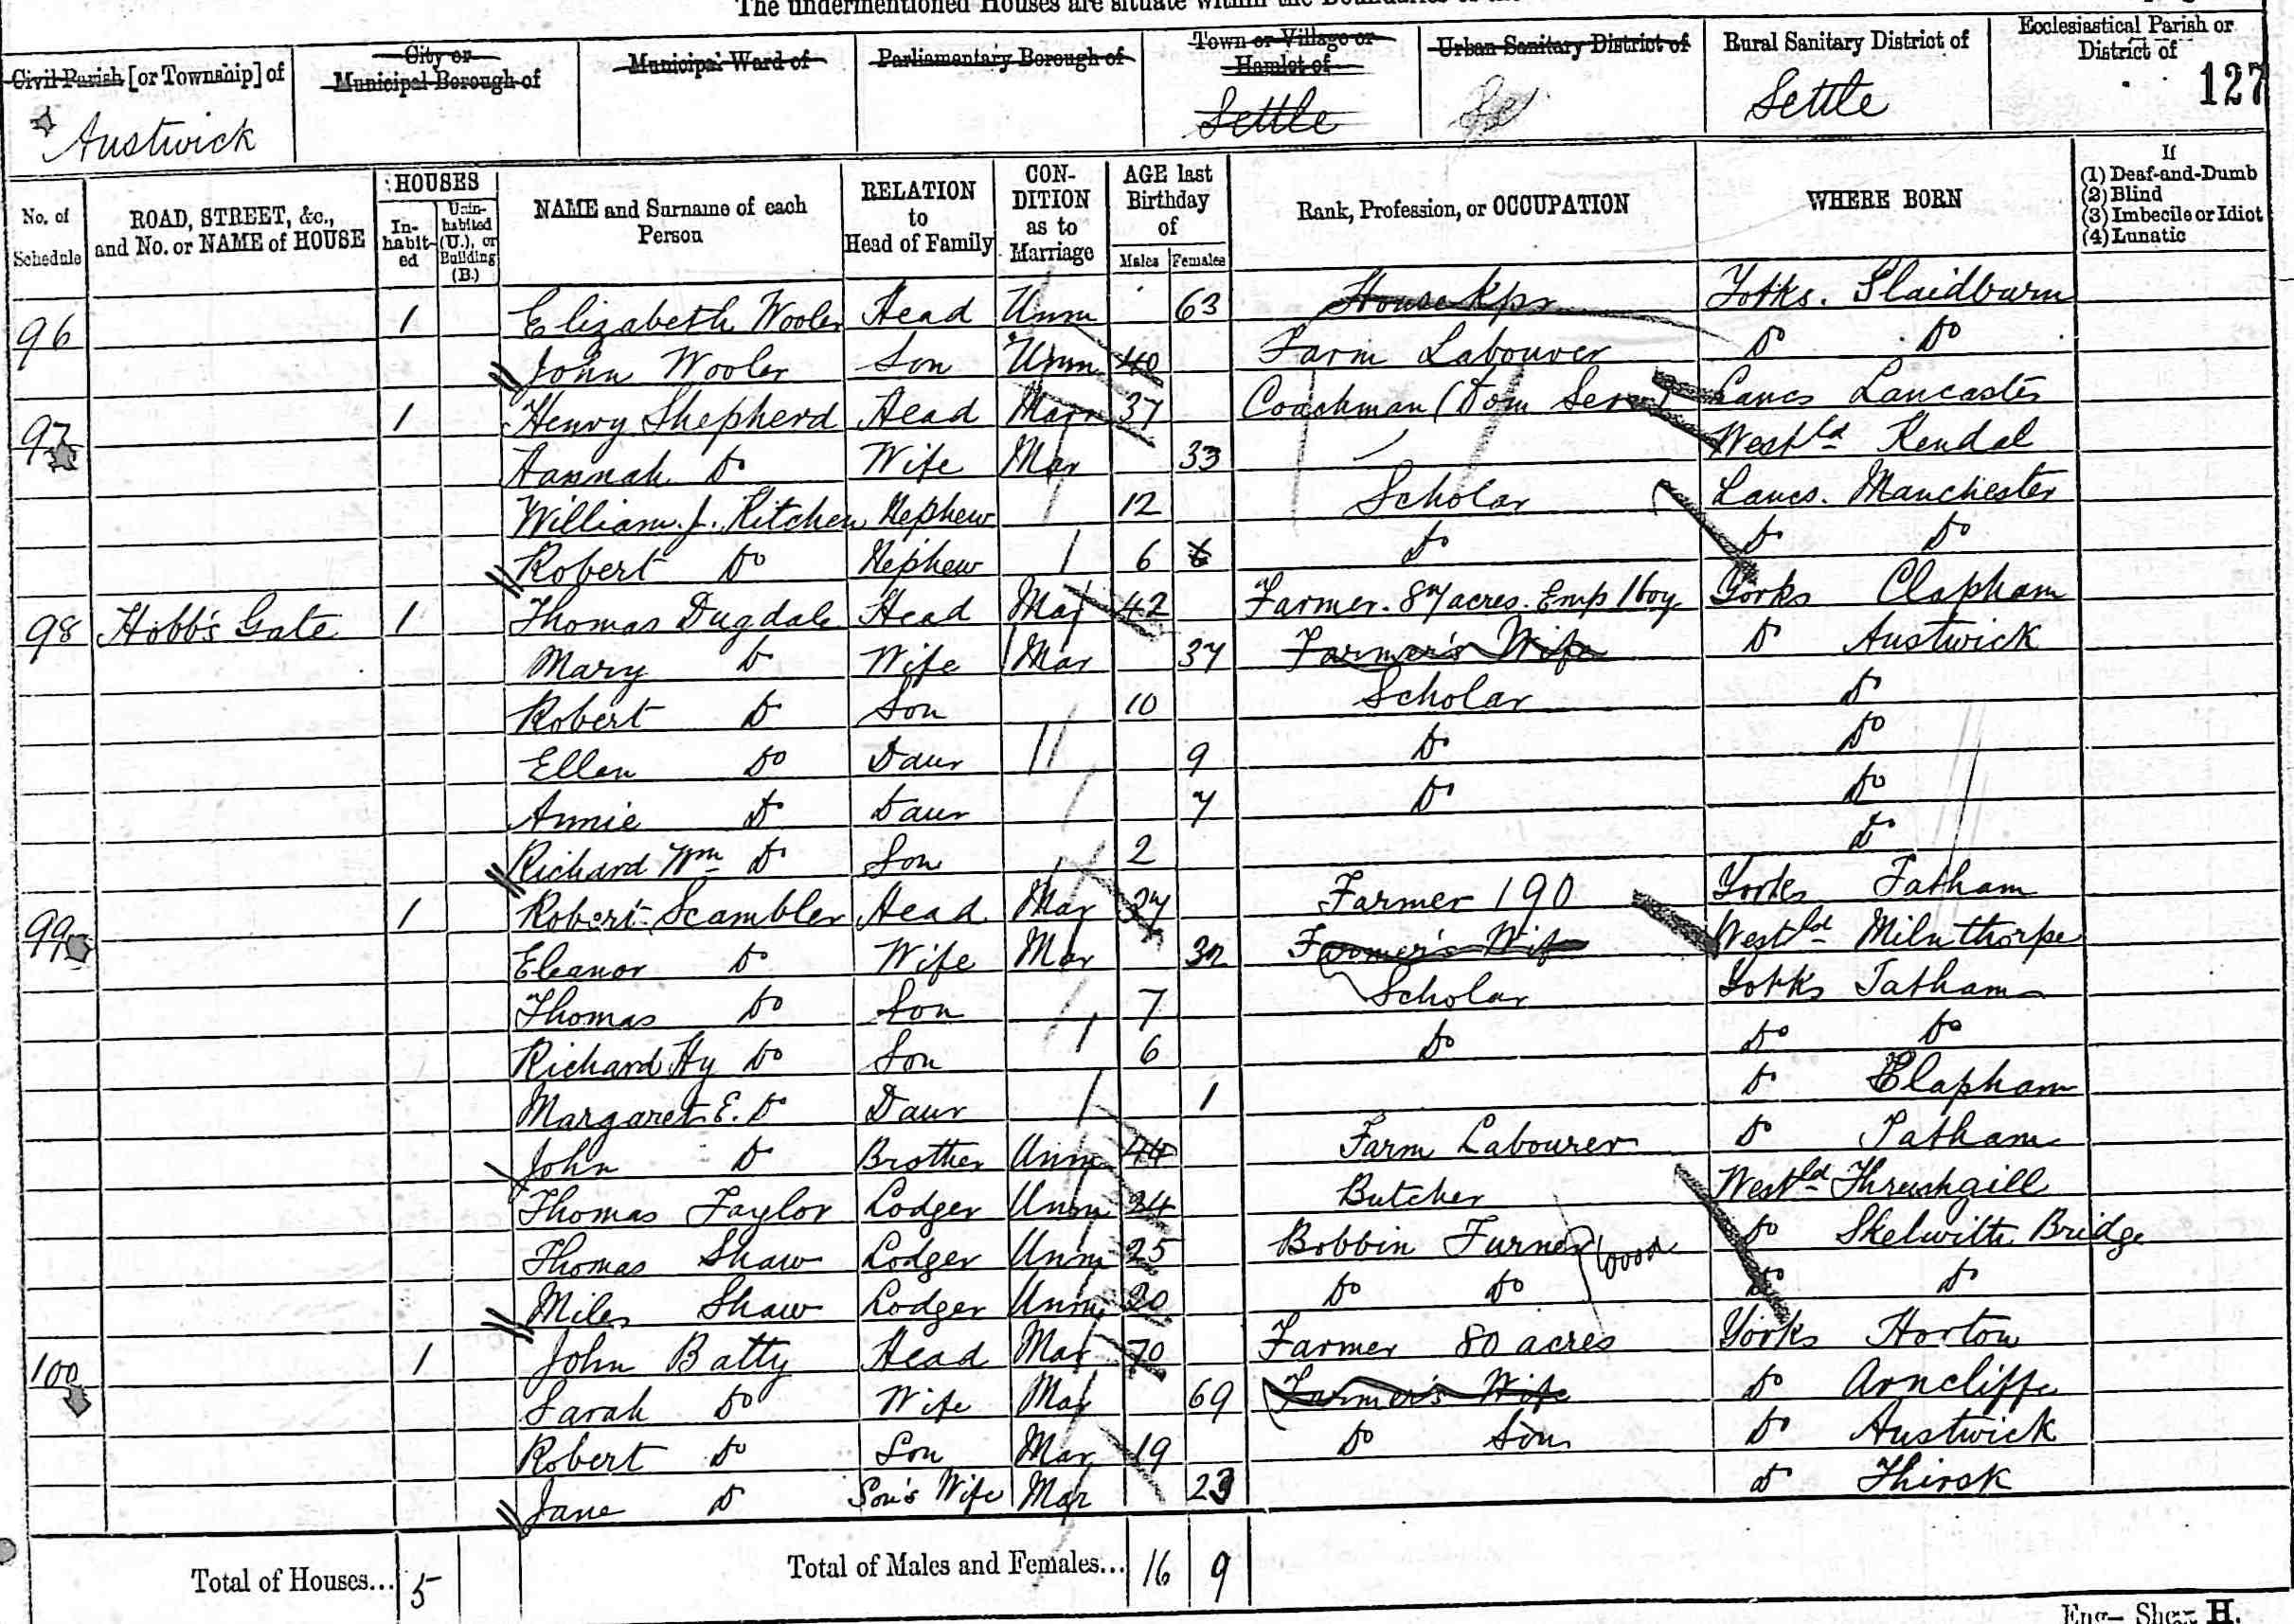 The undermentioned Houses are situate within the Boundaries of the
Civil Parish [or Township] of
City or Municipal Borough of
Municipal Ward of
Parliamentary Borough of
Town or Village or Hamlet of
Urban Sanitary District of
Rural Sanitary District of
Ecclesiastical Parish or District of
127
Austwick Settle Se Settle
No. of Schedule
ROAD, STREET, &c., and No. or NAME of HOUSE
HOUSES
In-habit-ed
Unin-habited (U.), or Building (B.)
NAME and Surname of each Person
RELATION to Head of Family
CON-DITION as to Marriage
AGE last Birthday of
Males Females
Rank, Profession, or OCCUPATION
WHERE BORN
If
(1) Deaf-and-Dumb
(2) Blind
(3) Imbecile or Idiot
(4) Lunatic
96 1 Elizabeth Wooler Head Unm 63 Housekpr Yorks. Slaidburn
John Wooler Son Unm 40 Farm Labourer Do Do
97 1 Henry Shepherd Head Marr 37 Coachman (Dom Serv) Lancs Lancaster
Hannah Do Wife Mar 33 Westld Kendal
William J. Kitchen Nephew 12 Scholar Lancs. Manchester
Robert Do Nephew 6 6 Do Do Do
98 Hobb's Gate 1 Thomas Dugdale Head Mar 42 Farmer. 87 acres. Emp 1 boy Yorks Clapham
Mary Do Wife Mar 37 Farmer's Wife Do Austwick
Robert Do Son 10 Scholar Do
Ellen Do Daur 9 Do Do
Annie Do Daur 7 Do Do
Richard Wm Do Son 2 Do
99 1 Robert Scambler Head Mar 37 Farmer 190 Yorks Tatham
Eleanor Do Wife Mar 32 Farmer's Wife Westld Milnthorpe
Thomas Do Son 7 Scholar Yorks Tatham
Richard Hy Do Son 6 Do Do Do
Margaret E. Do Daur 1 Do Clapham
John Do Brother Unm 44 Farm Labourer Do Tatham
Thomas Taylor Lodger Unm 24 Butcher Westld Thrushgill
Thomas Shaw Lodger Unm 25 Bobbin Turner Wood Do Skelwith Bridge
Miles Shaw Lodger Unm 20 Do Do Do Do
100 1 John Batty Head Mar 70 Farmer 80 acres Yorks Horton
Sarah Do Wife Mar 69 Farmer's Wife Do Arncliffe
Robert Do Son Mar 19 Do Son Do Austwick
Jane Do Son's Wife Mar 23 Do Thirsk
Total of Houses... 5 Total of Males and Females... 16 9
Eng— Sheet H.